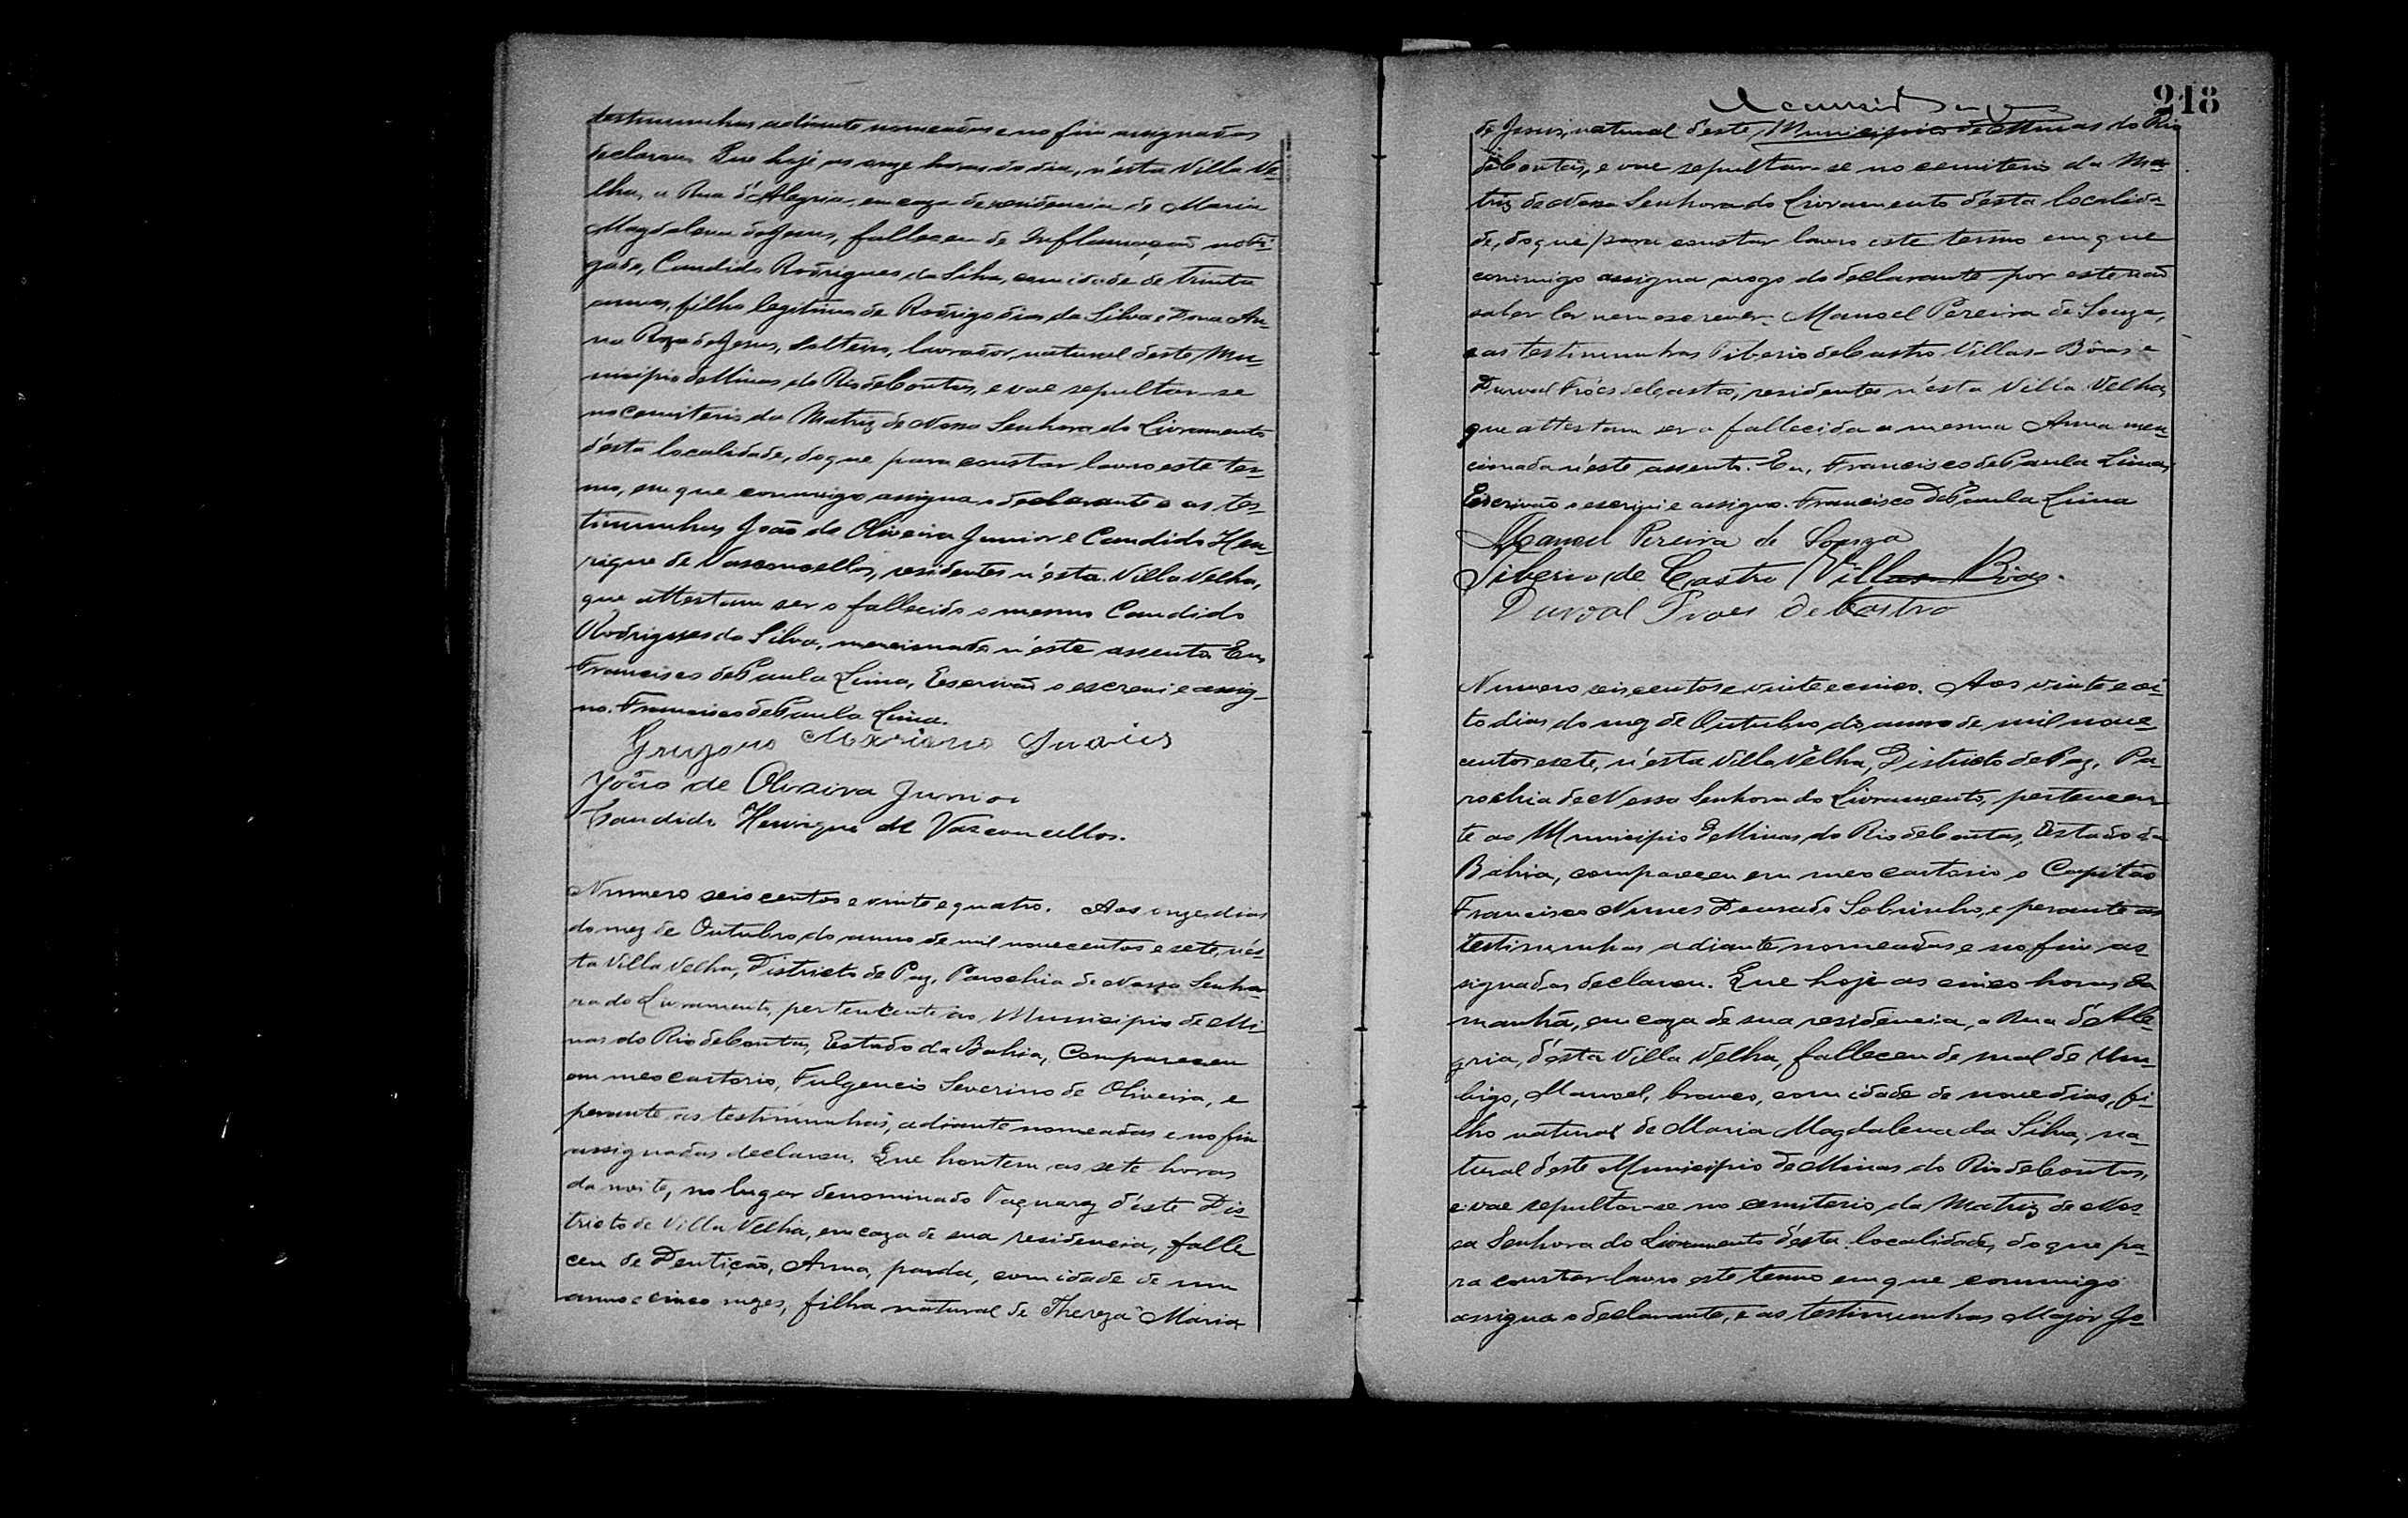 testimunhas adiante nomeadas e no fim assignadas
declarou. Que hoje as onze horas do dia, n'esta Villa Ve-
lha, a Rua d'Alegria, em caza de residencia de Maria
Magdalena de Jesus, falleceu de Inflammação no Fi-
gado, Candido Rodrigues da Silva, com idade de trinta
annos, filho legitimo de Rodrigo dias da Silva e Dona An-
na Roza de Jesus, solteiro, lavrador, natural deste Mu-
nicipio de Minas do Rio de Contas, e vae sepultar-se
no cemiterio da Matriz de Nossa Senhora do Livramento
d'esta localidade, do que para constar lavro este ter-
mo, em que commigo assigna o declarante e as tes-
timunhas João de Oliveira Junior e Candido Hen-
rique de Vasconcellos, residentes n'esta Villa Velha,
que attestam ser o fallecido o mesmo Candido
Rodrigues da Silva, mencionado n'este assento. Eu,
Francisco de Paula Lima, Escrivão o escrevi e assig-
no. Francisco de Paula Lima.
Mariano
João de Oliveira Junior
Candido Henrique de Vasconcellos.
Numero seis centos e vinte e quatro. Aos onze dias
do mez de Outubro do anno de mil novecentos e sete, n'es-
ta Villa Velha, Districto de Paz, Parochia de Nossa Senho-
ra do Livramento, pertencente ao Municipio de Mi-
nas do Rio de Contas, Estado da Bahia, Compareceu
em meo cartorio, Fulgencio Severino de Oliveira, e
perante as testimunhas, adiante nomeadas e no fim
assignadas declarou. Que hontem as sete horas
da noite, no lugar denominado Taquary d'este Dis-
tricto de Villa Velha, em caza de sua residencia, falle
ceu de Dentição, Anna, parda, com idade de um
anno e cinco mezes, filha natural de Thereza Maria
218
de Jesus, natural d'este Municipio de Minas do Rio
de Contas, e vae sepultar-se no cemiterio da Ma-
triz de Nossa Senhora do Livramento d'esta localida-
de, do que para constar lavro este termo em que
commigo assigna a rogo do declarante por este não
saber ler nem escrever. Manoel Pereira de Souza,
e as testimunhas Tiberio de Castro Villas-Bôas e
Durval Fróes de Castro, residentes n'esta Villa Velha,
que attestam ser a fallecida a mesma Anna men-
cionada n'este assento. Eu, Francisco de Paula Lima,
Escrivão o escrevi e assigno. Francisco de Paula Lima
Manoel Pereira de Souza
Tiberio de Castro Villas Bôas.
Durval Froes de Castro
Numero seis centos e vinte e cinco. Aos vinte e oi-
to dias do mez de Outubro do anno de mil nove
centos e sete, n'esta Villa Velha, Districto de Paz, Pa-
rochia de Nossa Senhora do Livramento, pertencen-
te ao Municipio de Minas do Rio de Contas, Estado da
Bahia, compareceu em meo cartorio o Capitão
Francisco Nunes Dourado Sobrinho, e perante as
testimunhas adiante nomeadas e no fim as-
signadas declarou. Que hoje as cinco horas da
manhã, em caza de sua residencia, a Rua d'Ale-
gria, d'esta Villa Velha, falleceu de mal de Um-
bigo, Manoel, branco, com idade de nove dias, fi-
lho natural de Maria Magdalena da Silva, na-
tural d'este Municipio de Minas do Rio de Contas,
e vae sepultar-se no cemiterio da Matriz de Nos-
sa Senhora do Livramento d'esta localidade, do que pa-
ra constar lavro este termo em que commigo
assigna o declarante, e as testimunhas Major Jo-